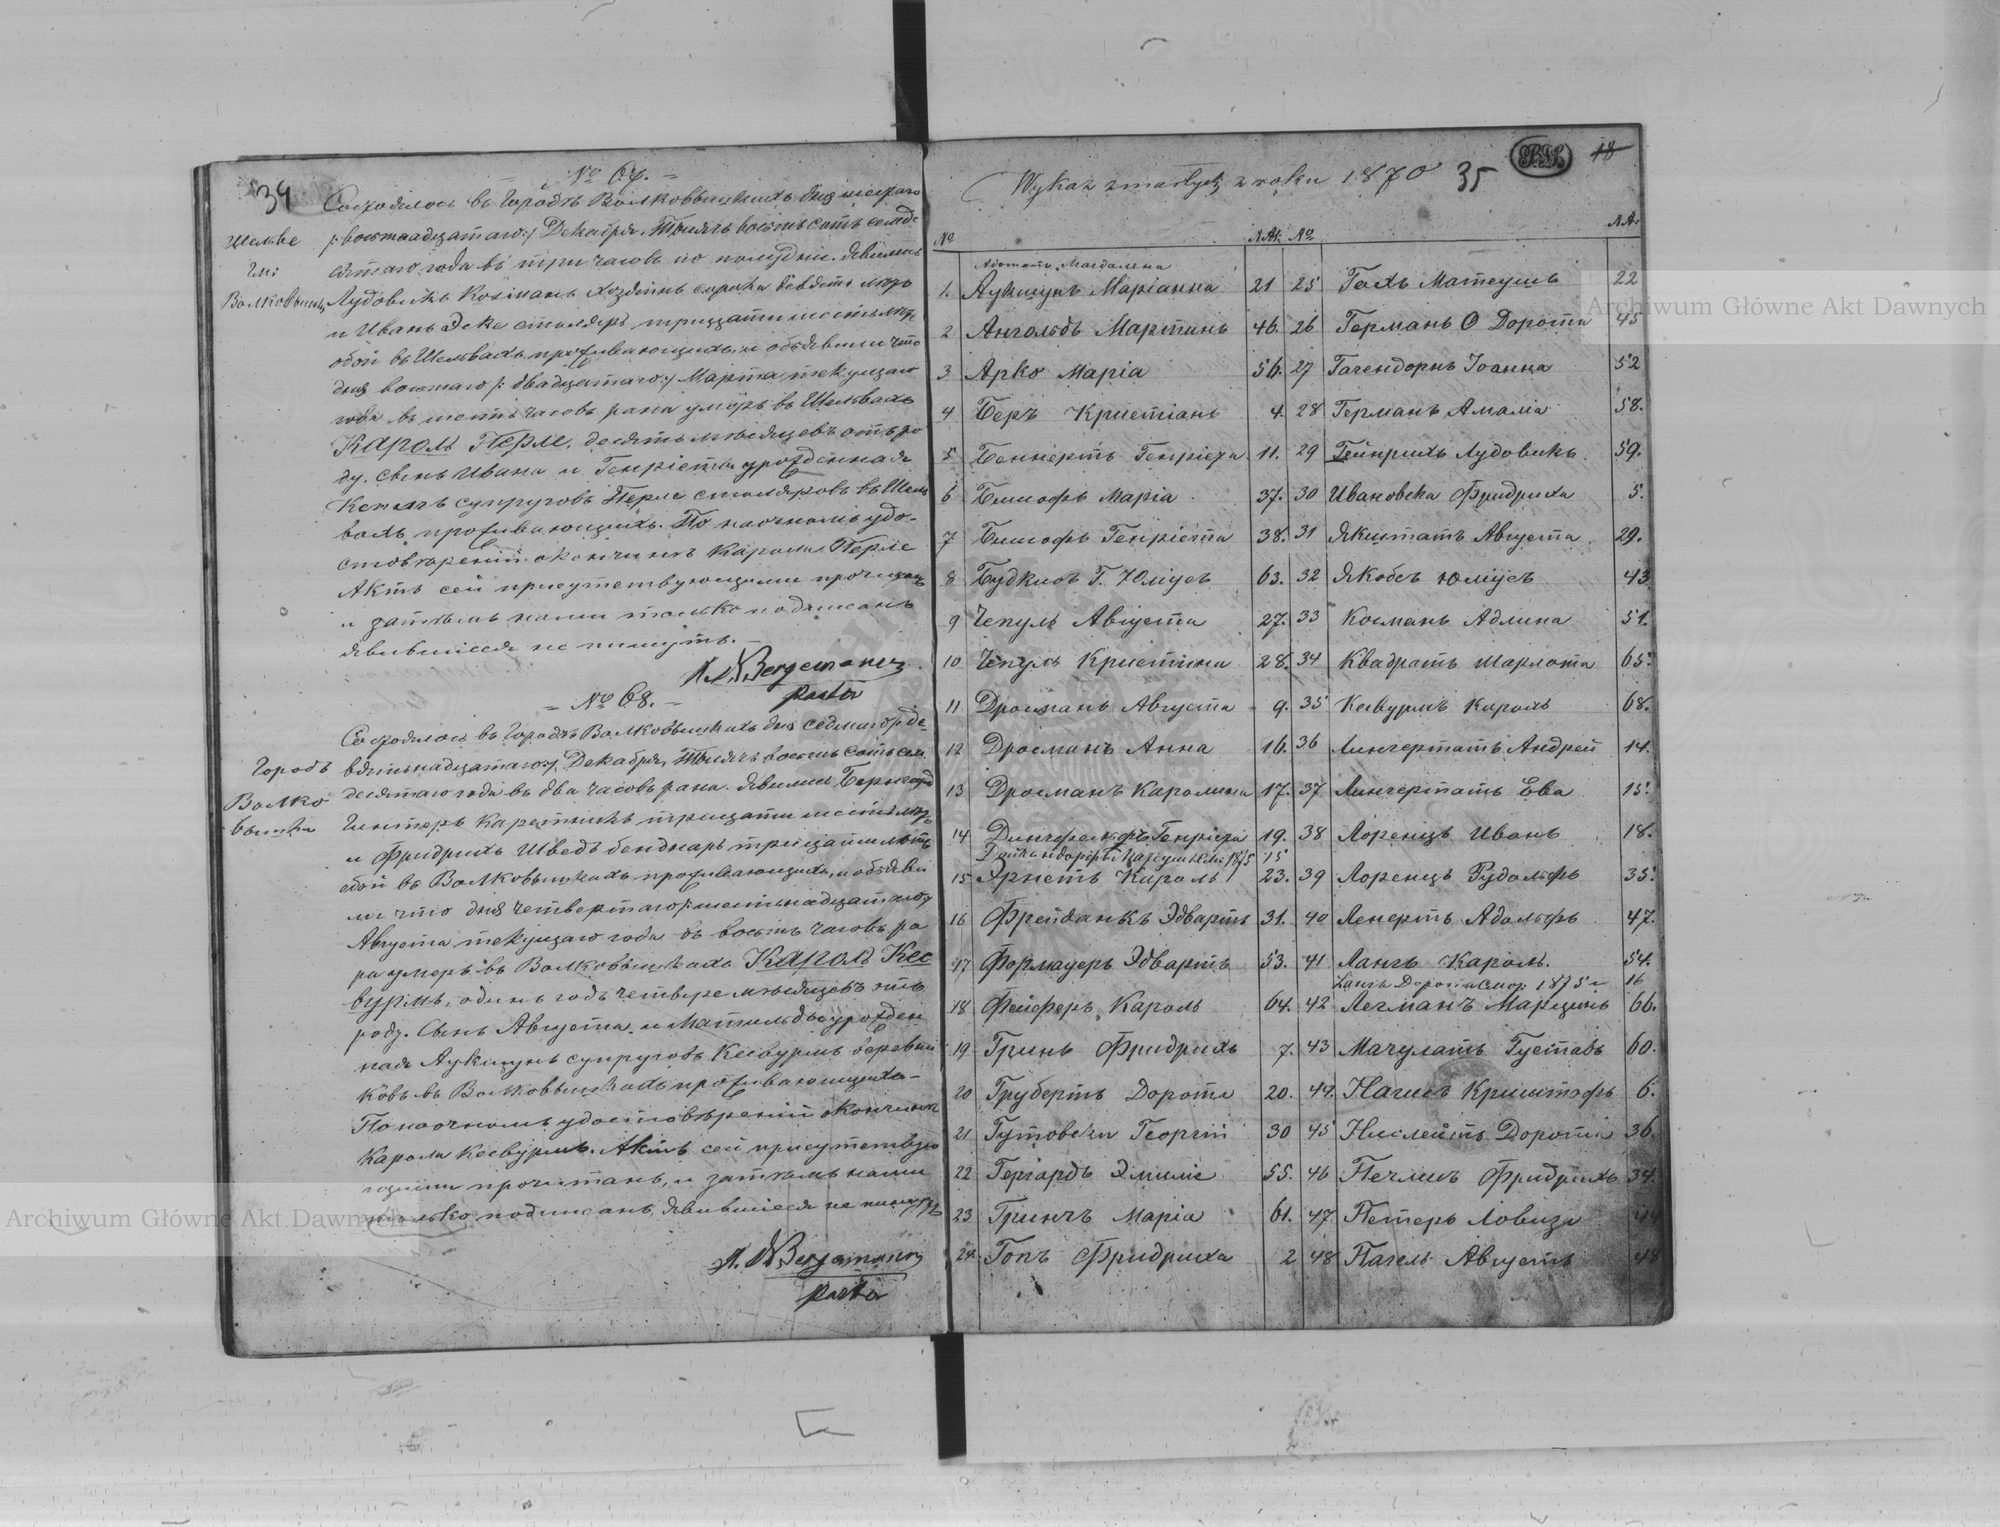 34
№ 67.
Состоялось въ Городѣ Волковышкахъ дня шестаго
/: восемнадцатаго :/ Декабря, Тысяча восемь сотъ семде-
сятаго года въ три часовъ по полудни. Явились
Лудовикъ Косманъ хозяинъ сорока девяти лѣтъ
и Иванъ Деке столяръ тридцати шести лѣтъ
обой въ Шельвахъ проживающихъ, и объявили что
дня восмаго /: двадцатаго :/ Марта, текущаго
года въ шесть часовъ рана умеръ въ Шельвахъ
Кароль Перле, десять мѣсяцевъ отъ ро
ду, сынъ Ивана и Генріеты урожденная
супруговъ Перле столяровъ въ Шель
вахъ проживающихъ. По наочномъ удо-
стовѣреніи о кончинѣ Кароля Перле
Актъ сей присутствующими прочитанъ
и затѣмъ нами только подписанъ
явившіеся не пишутъ.
Bergemann
Pastor
Шельве
гм:
Волковышки
№ 68.
Состоялось въ Городѣ Волковышкахъ дня седмаго /: де-
вятьнадцатаго :/ Декабря, Тысяча восемь сотъ сем
десятаго года въ два часовъ рана. Явились Бернгардъ
Гинтеръ каретникъ тридцати шести лѣтъ
и Фридрихъ Шведъ беднаръ тридцати лѣтъ
обой въ Волковышкахъ проживающихъ, и объяви
ли что дня четвертаго /: шестьнадцатаго :/
Августа текущаго года въ восемь часовъ ра
на умеръ въ Волковышкахъ Кароль Кес
вурмъ, одинъ годъ четвере мѣсяцевъ отъ
роду. Сынъ Августа и Матильды урожден
ная Аукщунъ супруговъ Кесвурмъ
въ Волковышкахъ проживающихъ-
По наочномъ удостовѣреніи о кончинѣ
Кароля Кесвурмъ. Актъ сей присутствую
щими прочитанъ, и затѣмъ нами
только подписанъ, явившіеся не пишутъ
Bergemann
Pastor
Городъ
Волко
вышки
Wykaz zmarłych z roku 1870
35
18
№ №
Магдалена
1. Аукщунъ Маріанна 21
2 Ангольдъ Мартинъ 46.
3 Арко Марія 56.
4 Беръ Кристіанъ 4.
5 Беннертъ 11.
6 Бишофъ Марія 37.
7 Бишофъ Генріета 38.
8 Будкисъ Г. Юліусъ 63.
9 Чепуль Августа 27.
10 Чепуль Кристина 28.
11 Дросманъ Августа 9.
12 Дросманъ Анна 16.
13 Дросманъ Каролина 17.
14 19.
1875 15
15 Эрнстъ Кароль 23.
16 Фрейданкъ Эдвартъ 31.
17 Формауеръ Эдвартъ 53.
18 Фейферъ Кароль 64.
19 Гринъ Фридрихъ 7.
20 Грубертъ Дорота 20.
21 Гутовски Георгій 30
22 Гергардъ Эмиліе 55.
23 Гринчъ Марія 61.
24. Гопъ Фридриха 2
25 Гохъ Матеушъ 22
26 Германъ О Дорота 45
27 Гагендорнъ Іоанна 52
28 Германъ Амалія 58.
29 Гейнрихъ Лудовикъ. 59.
30 Ивановска Фридриха 5.
31 Якштатъ Августа 29.
32 Якобсъ Юліусъ 43
33 Косманъ Адлина 51.
34 Квадратъ Шарлота 65.
35 Кесвурмъ Кароль 68.
36 Лингертатъ Андрей 14.
37 Лингертатъ Ева 15.
38 Лоренцъ Иванъ 18.
39 Лоренцъ Рудольфъ 35.
40 Ленертъ Адольфъ 47.
41 Лангъ Кароль. 54.
Лангъ Дорота 1875 16
42 Легманъ Марцинъ 66.
43 Мачулатъ Густавъ 60.
44. Криштофъ 6.
45 Дорота 36.
46 Печлисъ Фридрихъ 34.
47 Петеръ Ловиза 44
48 Пагель Августъ 48
Archiwum Główne Akt Dawnych
Archiwum Główne Akt Dawnych